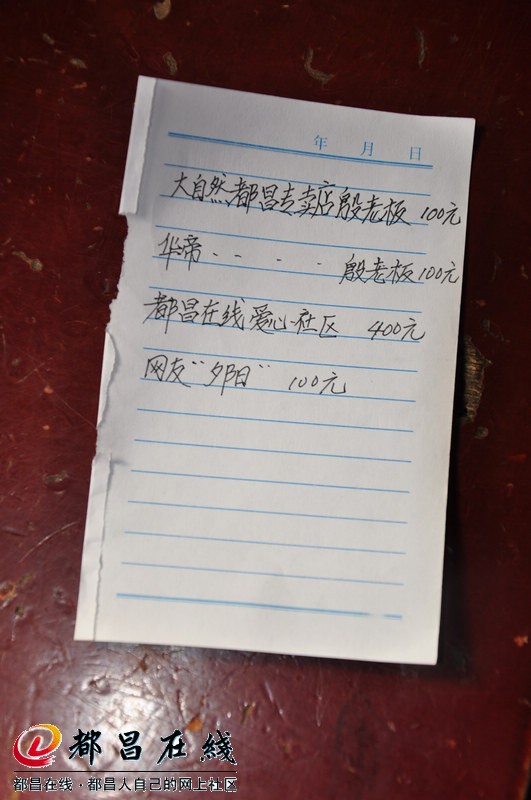 年 月 日
大自然都昌专卖店殷老板 100元
华帝 · · · · 殷老板100元
都昌在线爱心社区 400元
网友“夕阳” 100元
都昌在線
都昌在线·都昌人自己的网上社区